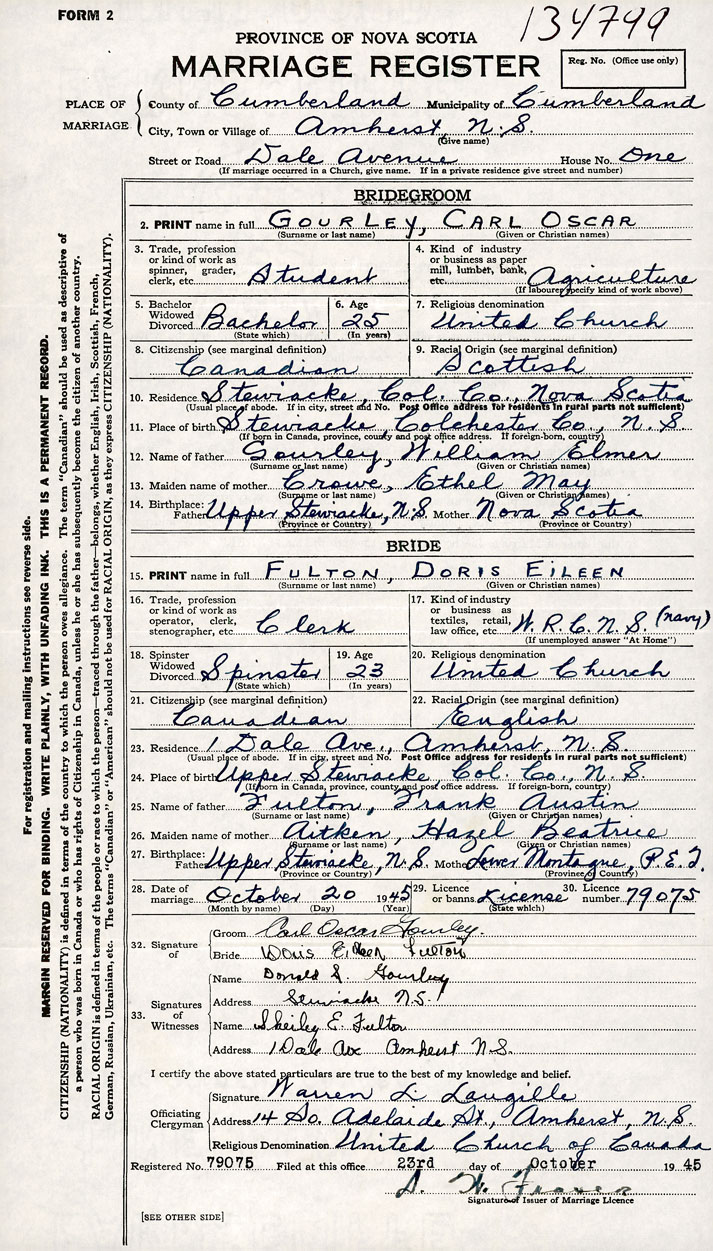 FORM 2
134799
PROVINCE OF NOVA SCOTIA
MARRIAGE REGISTER
Reg. No. (Office use only)
PLACE OF MARRIAGE
County of Cumberland Municipality of Cumberland
City, Town or Village of Amherst, N.S.
(Give name)
Street or Road Dale Avenue House No. One
(If marriage occurred in a Church, give name. If in a private residence give street and number)
BRIDEGROOM
2. PRINT name in full GOURLEY, CARL OSCAR
(Surname or last name) (Given or Christian names)
3. Trade, profession or kind of work as spinner, grader, clerk, etc. Student
4. Kind of industry or business as paper mill, lumber, bank, etc. Agriculture
(If labourer specify kind of work above)
5. Bachelor Widowed Divorced Bachelor
(State which)
6. Age 25
(In years)
7. Religious denomination United Church
8. Citizenship (see marginal definition) Canadian
9. Racial Origin (see marginal definition) Scottish
10. Residence Stewiacke, Col. Co., Nova Scotia
(Usual place of abode. If in city, street and No. Post Office address for residents in rural parts not sufficient)
11. Place of birth Stewiacke, Colchester Co., N.S
(If born in Canada, province, county and post office address. If foreign-born, country)
12. Name of father Gourley, William Elmer
(Surname or last name) (Given or Christian names)
13. Maiden name of mother Crowe, Ethel May
(Surname or last name) (Given or Christian names)
14. Birthplace: Father Upper Stewiacke, N.S. Mother Nova Scotia
(Province or Country) (Province or Country)
BRIDE
15. PRINT name in full FULTON, DORIS EILEEN
(Surname or last name) (Given or Christian names)
16. Trade, profession or kind of work as operator, clerk, stenographer, etc. Clerk
17. Kind of industry or business as textiles, retail, law office, etc. W.R.C.N.S. (navy)
(If unemployed answer "At Home")
18. Spinster Widowed Divorced Spinster
(State which)
19. Age 23
(In years)
20. Religious denomination United Church
21. Citizenship (see marginal definition) Canadian
22. Racial Origin (see marginal definition) English
23. Residence 1 Dale Ave., Amherst, N.S.
(Usual place of abode. If in city, street and No. Post Office address for residents in rural parts not sufficient)
24. Place of birth Upper Stewiacke, Col. Co., N.S.
(If born in Canada, province, county and post office address. If foreign-born, country)
25. Name of father Fulton, Frank Austin
(Surname or last name) (Given or Christian names)
26. Maiden name of mother Aitken, Hazel Beatrice
(Surname or last name) (Given or Christian names)
27. Birthplace: Father Upper Stewiacke, N.S. Mother Lower Montague, P.E.I.
(Province or Country) (Province or Country)
28. Date of marriage October 20 1945
(Month by name) (Day) (Year)
29. Licence or banns License
(State which)
30. Licence number 79075
32. Signature of
Groom Carl Oscar Gourley.
Bride Doris Eileen Fulton
33. Signatures of Witnesses
Name Donald S. Gourley
Address Stewiacke N.S.
Name Shirley E. Fulton
Address 1 Dale Ave Amherst N.S.
I certify the above stated particulars are true to the best of my knowledge and belief.
Officiating Clergyman
Signature Warren L. Langille
Address 14 So. Adelaide St., Amherst, N.S.
Religious Denomination United Church of Canada
Registered No. 79075 Filed at this office 23rd day of October 19 45
Signature of Issuer of Marriage Licence
[SEE OTHER SIDE]
For registration and mailing instructions see reverse side.
MARGIN RESERVED FOR BINDING. WRITE PLAINLY, WITH UNFADING INK. THIS IS A PERMANENT RECORD.
CITIZENSHIP (NATIONALITY) is defined in terms of the country to which the person owes allegiance. The term "Canadian" should be used as descriptive of
a person who was born in Canada or who has rights of Citizenship in Canada, unless he or she has subsequently become the citizen of another country.
RACIAL ORIGIN is defined in terms of the people or race to which the person—traced through the father—belongs, whether English, Irish, Scottish, French,
German, Russian, Ukrainian, etc. The terms "Canadian" or "American" should not be used for RACIAL ORIGIN, as they express CITIZENSHIP (NATIONALITY).